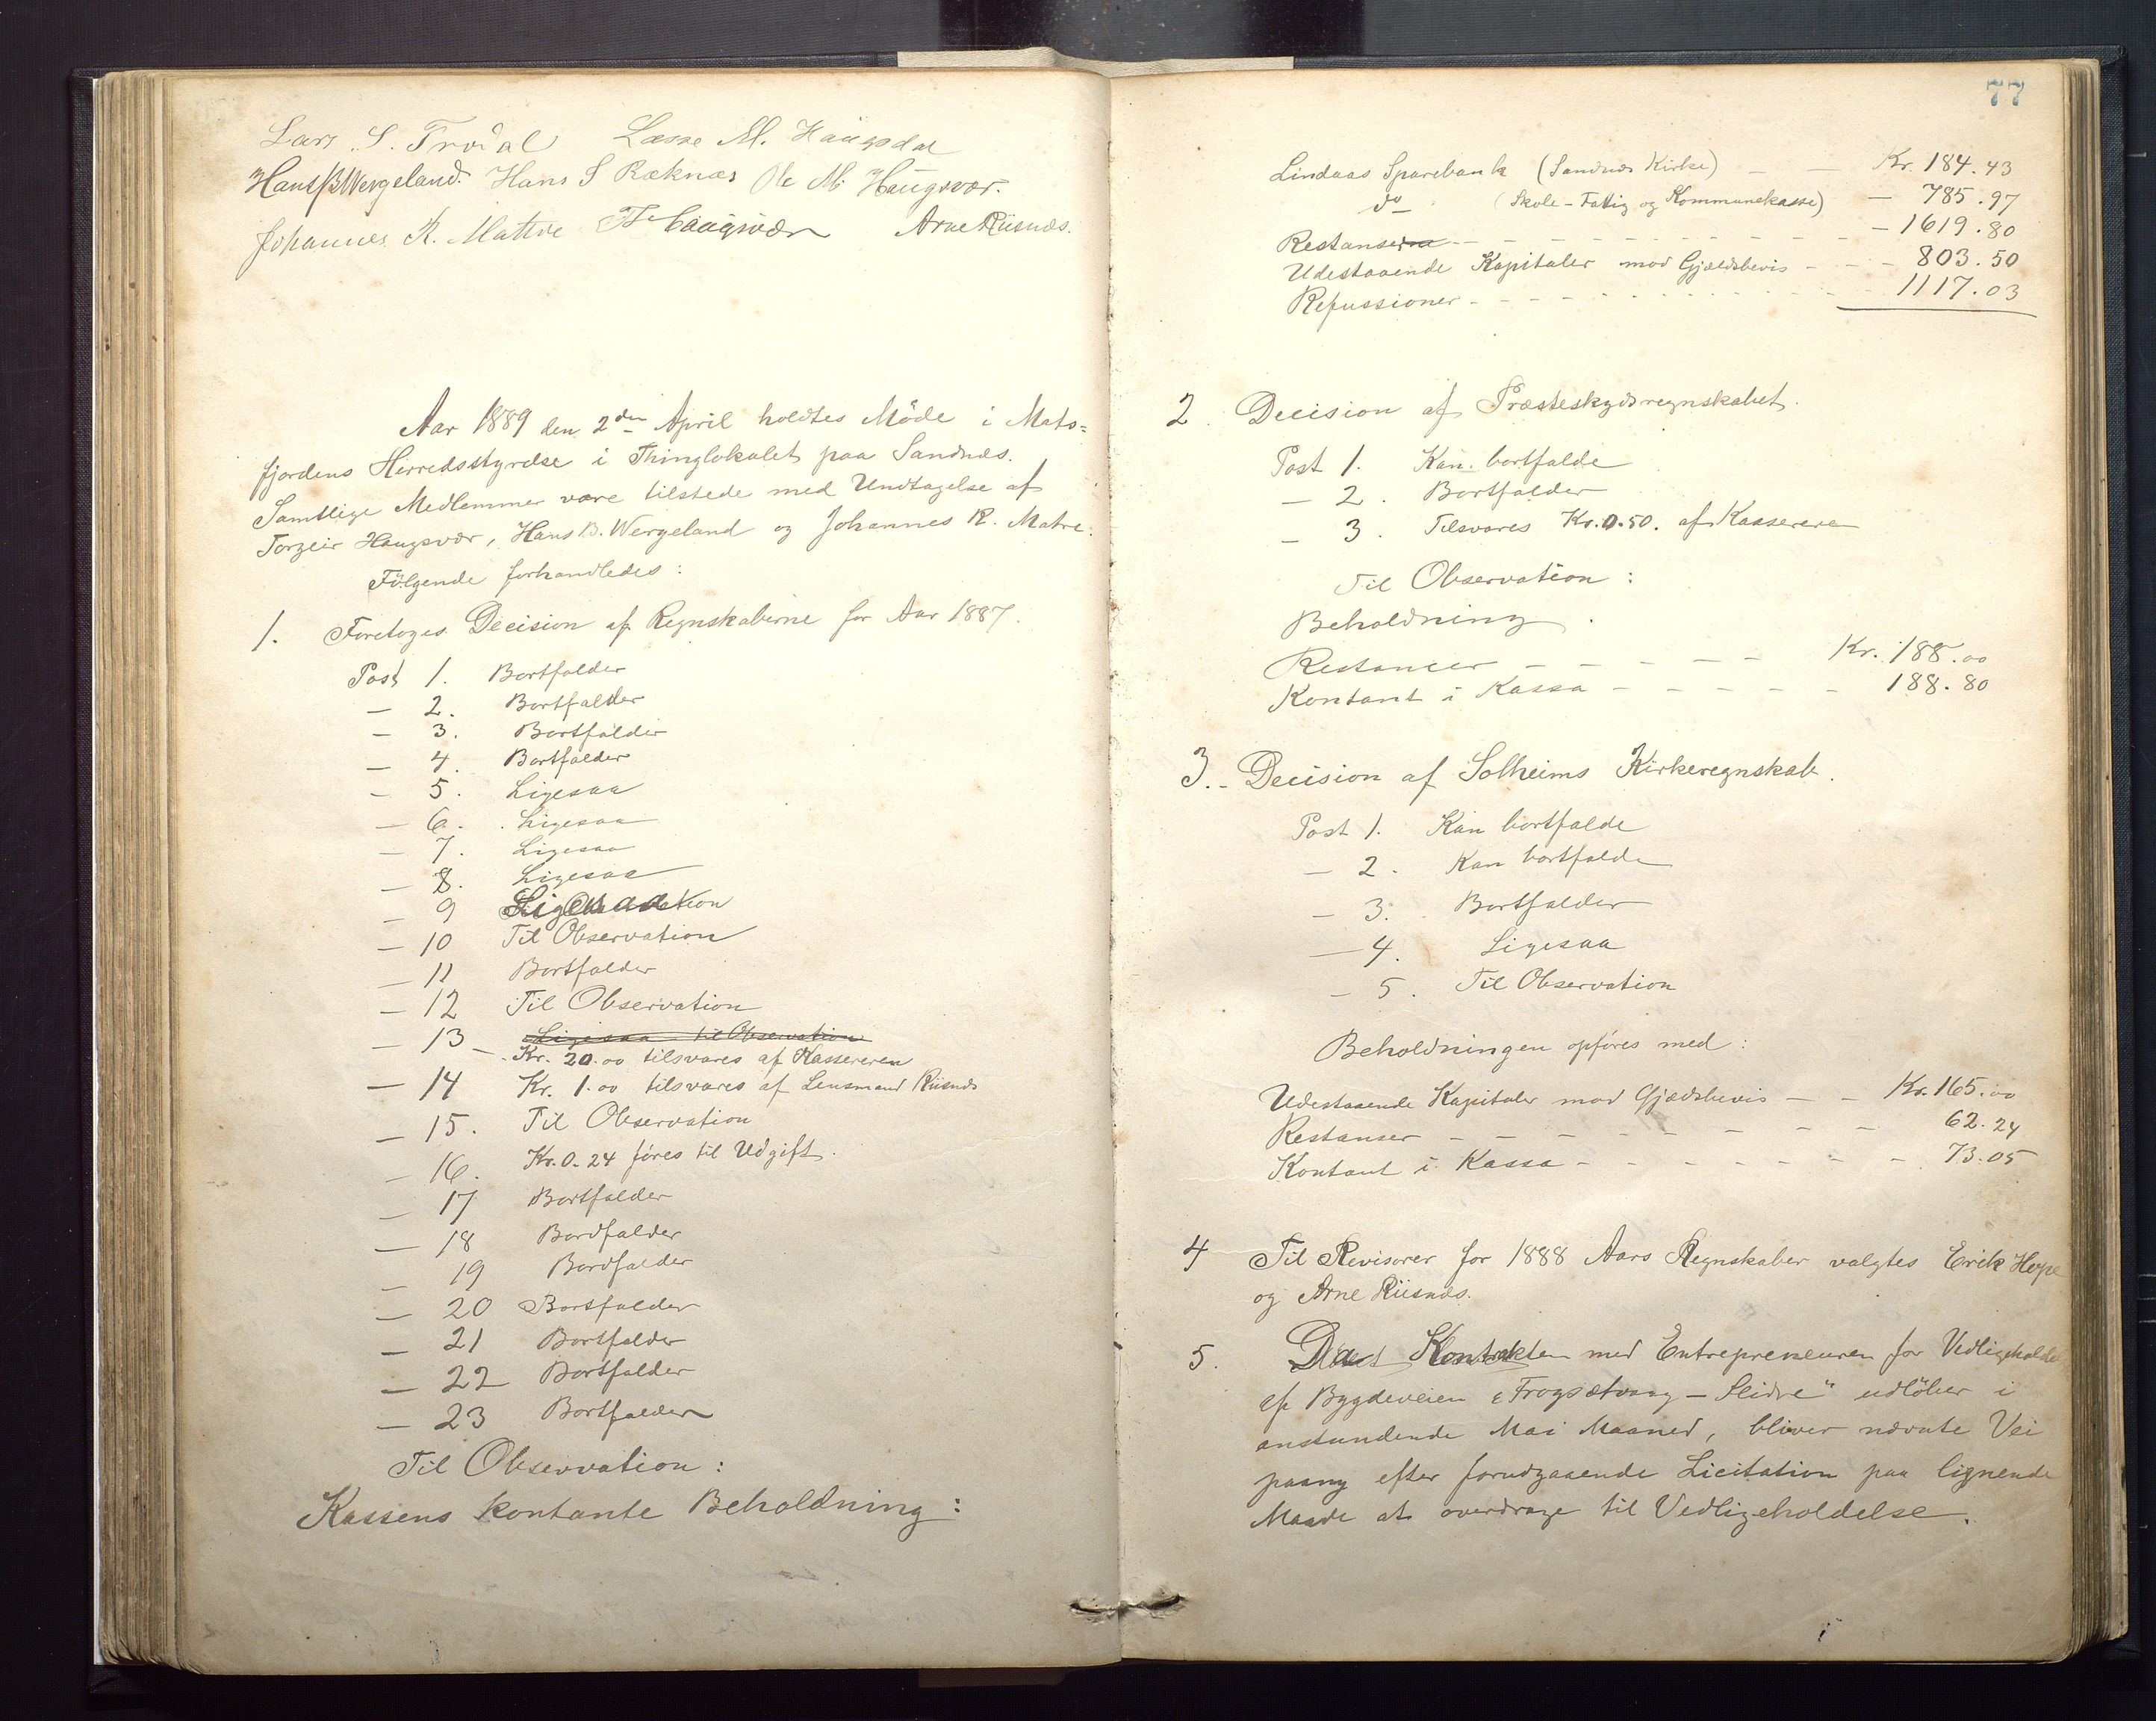 Lars S. Trodal Lasse M. Haugsdal
Hans B Wergeland. Hans S Ræknæs Ole M. Haugsvær.
Johannes K. Matre T Haugsvær Arne Riisnæs.
Aar 1889 den 2den April holdtes Möde i Mats=
fjordens Herredsstyrelse i Thinglokalet paa Sandnæs.
Samtlige Medlemmer vare tilstede med Undtagelse af
Torgeir Haugsvær, Hans B. Wergeland og Johannes K. Matre.
Fölgende forhandledes:
1. Foretoges Decision af Regnskaberne for Aar 1887.
Post 1. Bortfalder
— 2. Bortfalder
— 3. Bortfalder
— 4. Bortfalder
— 5. Ligesaa
— 6. Ligesaa
— 7. Ligesaa
— 8. Ligesaa
— 9 Ligesaa
— 10 Til Observation
— 11 Bortfalder
— 12 Til Observation
— 13 Ligesaa til Observation
— Kr. 20.00 tilsvares af Kassereren
— 14 Kr. 1.00 tilsvares af Lensmand Riisnæs
— 15. Til Observation
— 16. Kr. 0.24 föres til Udgift.
— 17 Bortfalder
— 18 Bordfalder
— 19 Bordfalder
— 20 Bortfalder
— 21 Bortfalder
— 22 Bortfalder
— 23 Bortfalder
Til Observation:
Kassens kontante Beholdning:
77
Lindaas Sparebank (Sandnæs Kirke) — — Kr. 184.43
do (Skole-Fattig og Kommunekasse) — 785.97
Restanser — 1619.80
Udestaaende Kapitaler mod Gjældsbevis - - - 803.50
Refussioner - - - 1117.03
2. Decision af Præsteskydsregnskabet.
Post 1. Kan bortfalde
— 2. Bortfalder
— 3. Tilsvares Kr. 0.50. af Kassereren
Til Observation:
Beholdning.
Restancer — — — — — Kr. 188.00
Kontant i Kassa - - - - - 188.80
3. Decision af Solheims Kirkeregnskab.
Post 1. Kan bortfalde
— 2. Kan bortfalde
— 3. Bortfalder
— 4. Ligesaa
— 5. Til Observation
Beholdningen opföres med:
Udestaaende Kapitaler mod Gjældsbevis — — Kr. 165.00
Restanser — — — — — — — — 62.24
Kontant i Kassa - - - - - - - 73.05
4 Til Revisorer for 1888 Aars Regnskaber valgtes Erik Hope
og Arne Riisnæs.
5. Da Kontrakten med Entrepreneuren for Vedligeholdel
af Bygdeveien „Frogsætvaag — Sleidre" udlöber i
anstundende Mai Maaned, bliver nævnte Vei
paany efter forudgaaende Licitation paa lignende
Maade at overdrage til Vedligeholdelse.